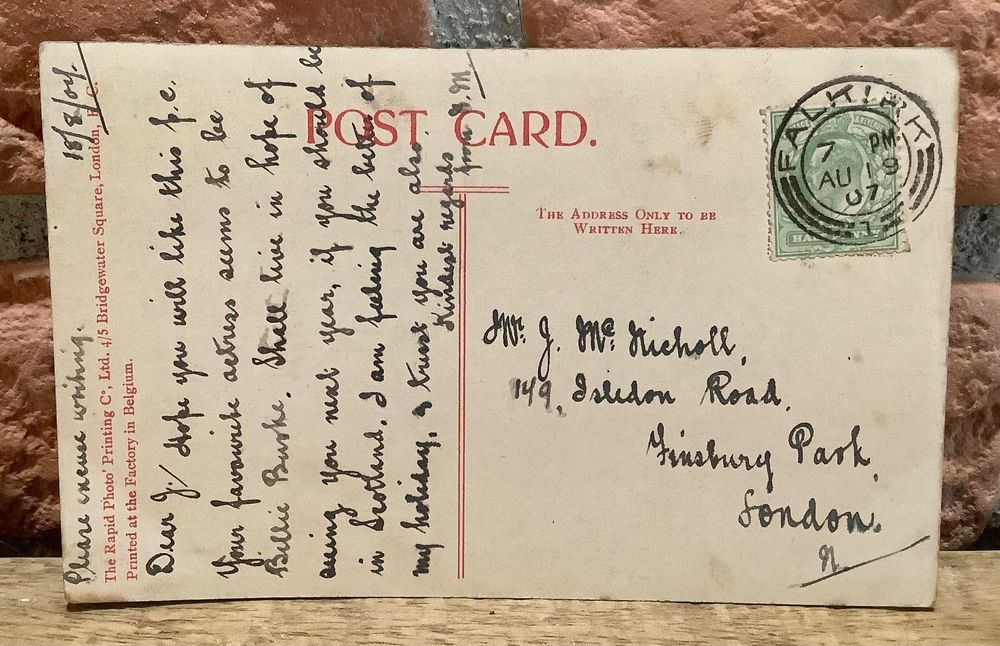 POST CARD.
The Address Only to be
Written Here.
FALKIRK
7 PM
AU 10
07
1
HALF
Mr. J. Mc Nicholl,
149, Isledon Road,
Finsbury Park,
London.
N.
Please excuse writing.
The Rapid Photo' Printing Co, Ltd. 4/5 Bridgewater Square, London, E.C.
Printed at the Factory in Belgium.
Dear J/ Hope you will like this p.c.
Your favourite actress seems to be
Billie Burke. Shall live in hope of
seeing you next year, if you should be
in Scotland. I am feeling the better of
my holiday, & trust you are also.
Kindest regards
from